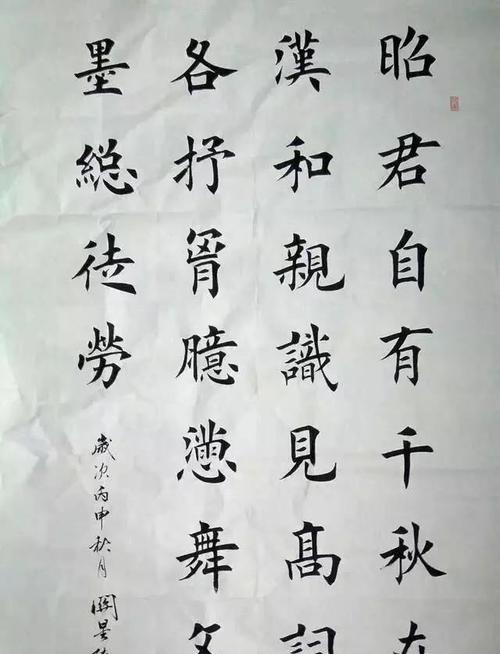 昭君自有千秋在
漢和親識見高詞
各抒胷臆懣舞文
墨緫徒勞
歲次丙申秋月